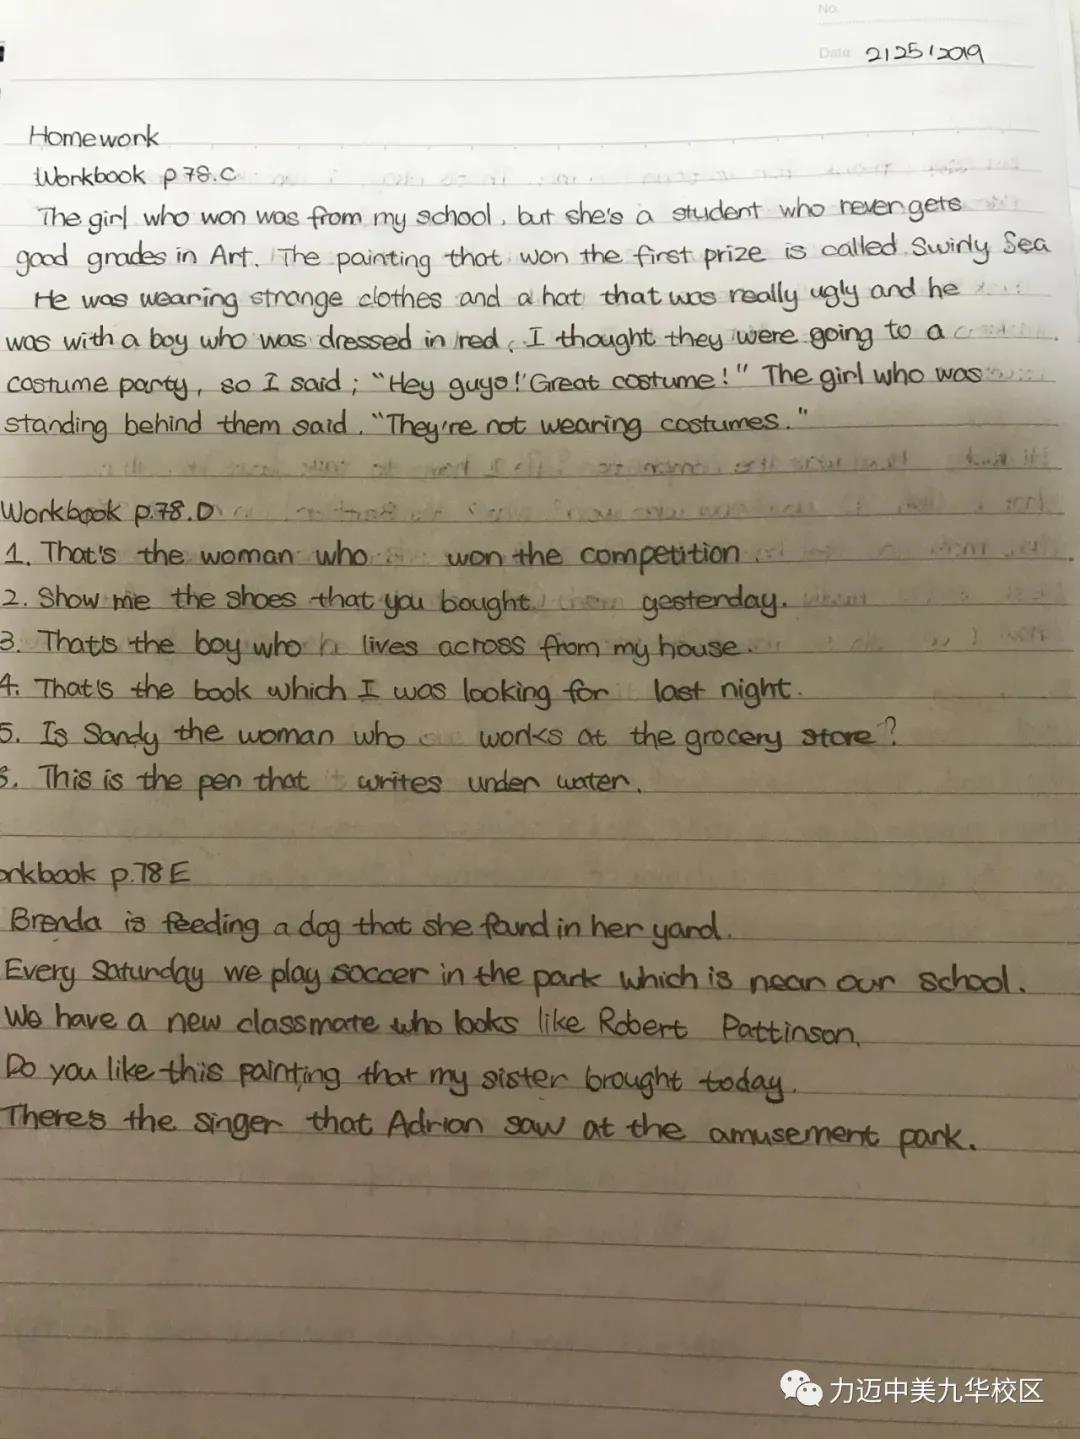 No.
Date 2/25/2019
Homework
Workbook p78.C
The girl who won was from my school, but she's a student who never gets
good grades in Art. The painting that won the first prize is called Swirly Sea
He was wearing strange clothes and a hat that was really ugly and he
was with a boy who was dressed in red, I thought they were going to a
costume party, so I said; "Hey guys! Great costume!" The girl who was
standing behind them said. "They're not wearing costumes."
Workbook p.78.D
1. That's the woman who won the competition
2. Show me the shoes that you bought yesterday.
3. That's the boy who lives across from my house.
4. That's the book which I was looking for last night.
5. Is Sandy the woman who works at the grocery store?
6. This is the pen that writes under water.
orkbook p.78 E
Brenda is feeding a dog that she found in her yard.
Every Saturday we play soccer in the park which is near our school.
We have a new classmate who looks like Robert Pattinson.
Do you like this painting that my sister brought today.
There's the singer that Adrian saw at the amusement park.
力迈中美九华校区